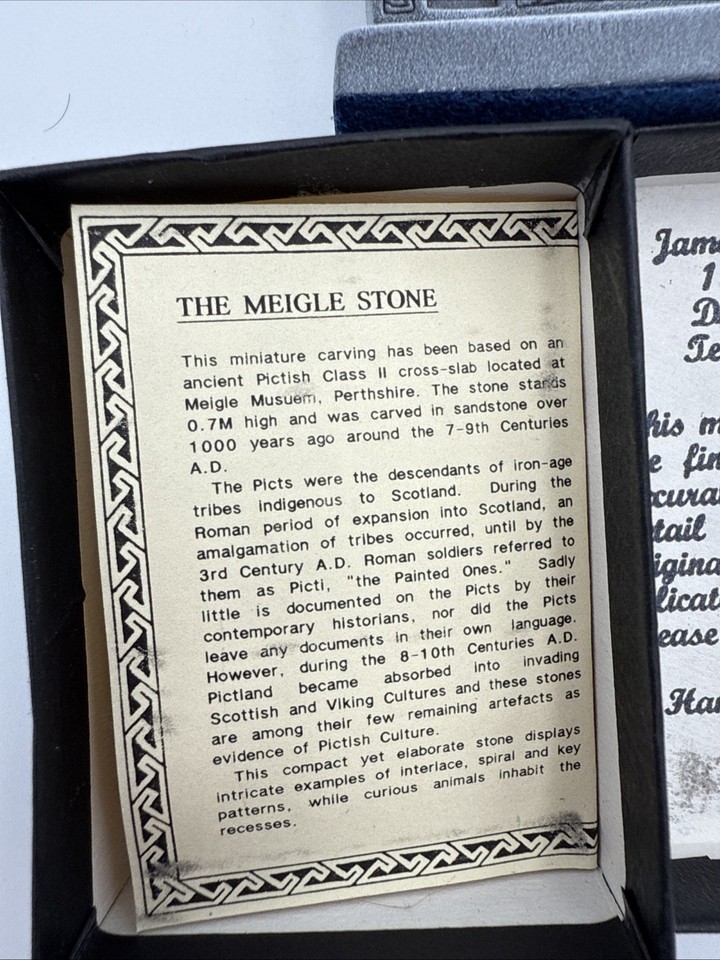 THE MEIGLE STONE
This miniature carving has been based on an
ancient Pictish Class II cross-slab located at
Meigle Musuem, Perthshire. The stone stands
0.7M high and was carved in sandstone over
1000 years ago around the 7-9th Centuries
A.D.
The Picts were the descendants of iron-age
tribes indigenous to Scotland. During the
Roman period of expansion into Scotland, an
amalgamation of tribes occurred, until by the
3rd Century A.D. Roman soldiers referred to
them as Picti, "the Painted Ones." Sadly
little is documented on the Picts by their
contemporary historians, nor did the Picts
leave any documents in their own language.
However, during the 8-10th Centuries A.D.
Pictland became absorbed into invading
Scottish and Viking Cultures and these stones
are among their few remaining artefacts as
evidence of Pictish Culture.
This compact yet elaborate stone displays
intricate examples of interlace, spiral and key
patterns, while curious animals inhabit the
recesses.